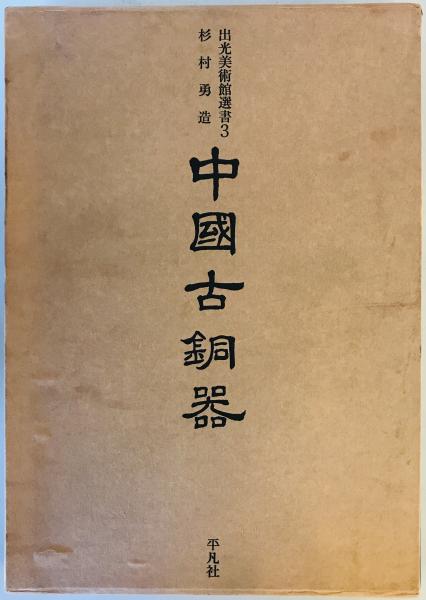 出光美術館選書3
杉村勇造
中國古銅器
平凡社